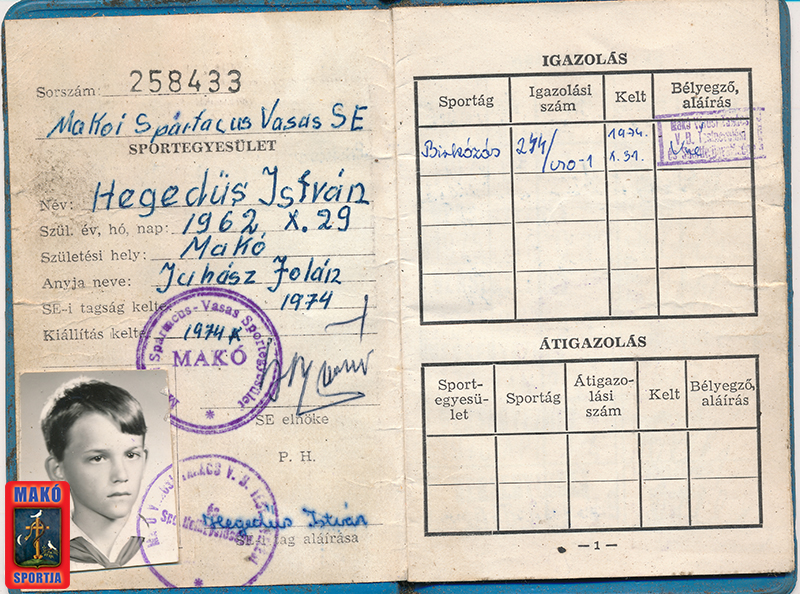 Sorszám: 258433
Makói Spartacus Vasas SE
SPORTEGYESÜLET
Név: Hegedüs István
Szül. év, hó, nap: 1962 X. 29
Születési hely: Makó
Anyja neve: Juhász Jolán
SE-i tagság kelte: 1974
Kiállítás kelte: 1974 X
Spartacus-Vasas Sportegyesület
MAKÓ
SE elnöke
P. H.
Hegedüs István
tag aláírása
MAKÓ
SPORTJA
IGAZOLÁS
Sportág
Igazolási szám
Kelt
Bélyegző, aláírás
Birkózás
1974.
X. 31.
ÁTIGAZOLÁS
Sport-
egyesü-
let
Sportág
Átigazo-
lási
szám
Kelt
Bélyegző,
aláírás
— 1 —